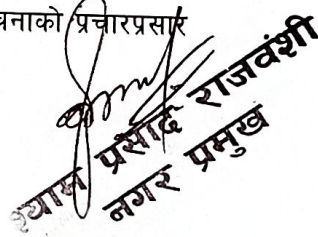 चनाको प्रचारप्रसार
श्याम प्रसाद राजवंशी
नगर प्रमुख